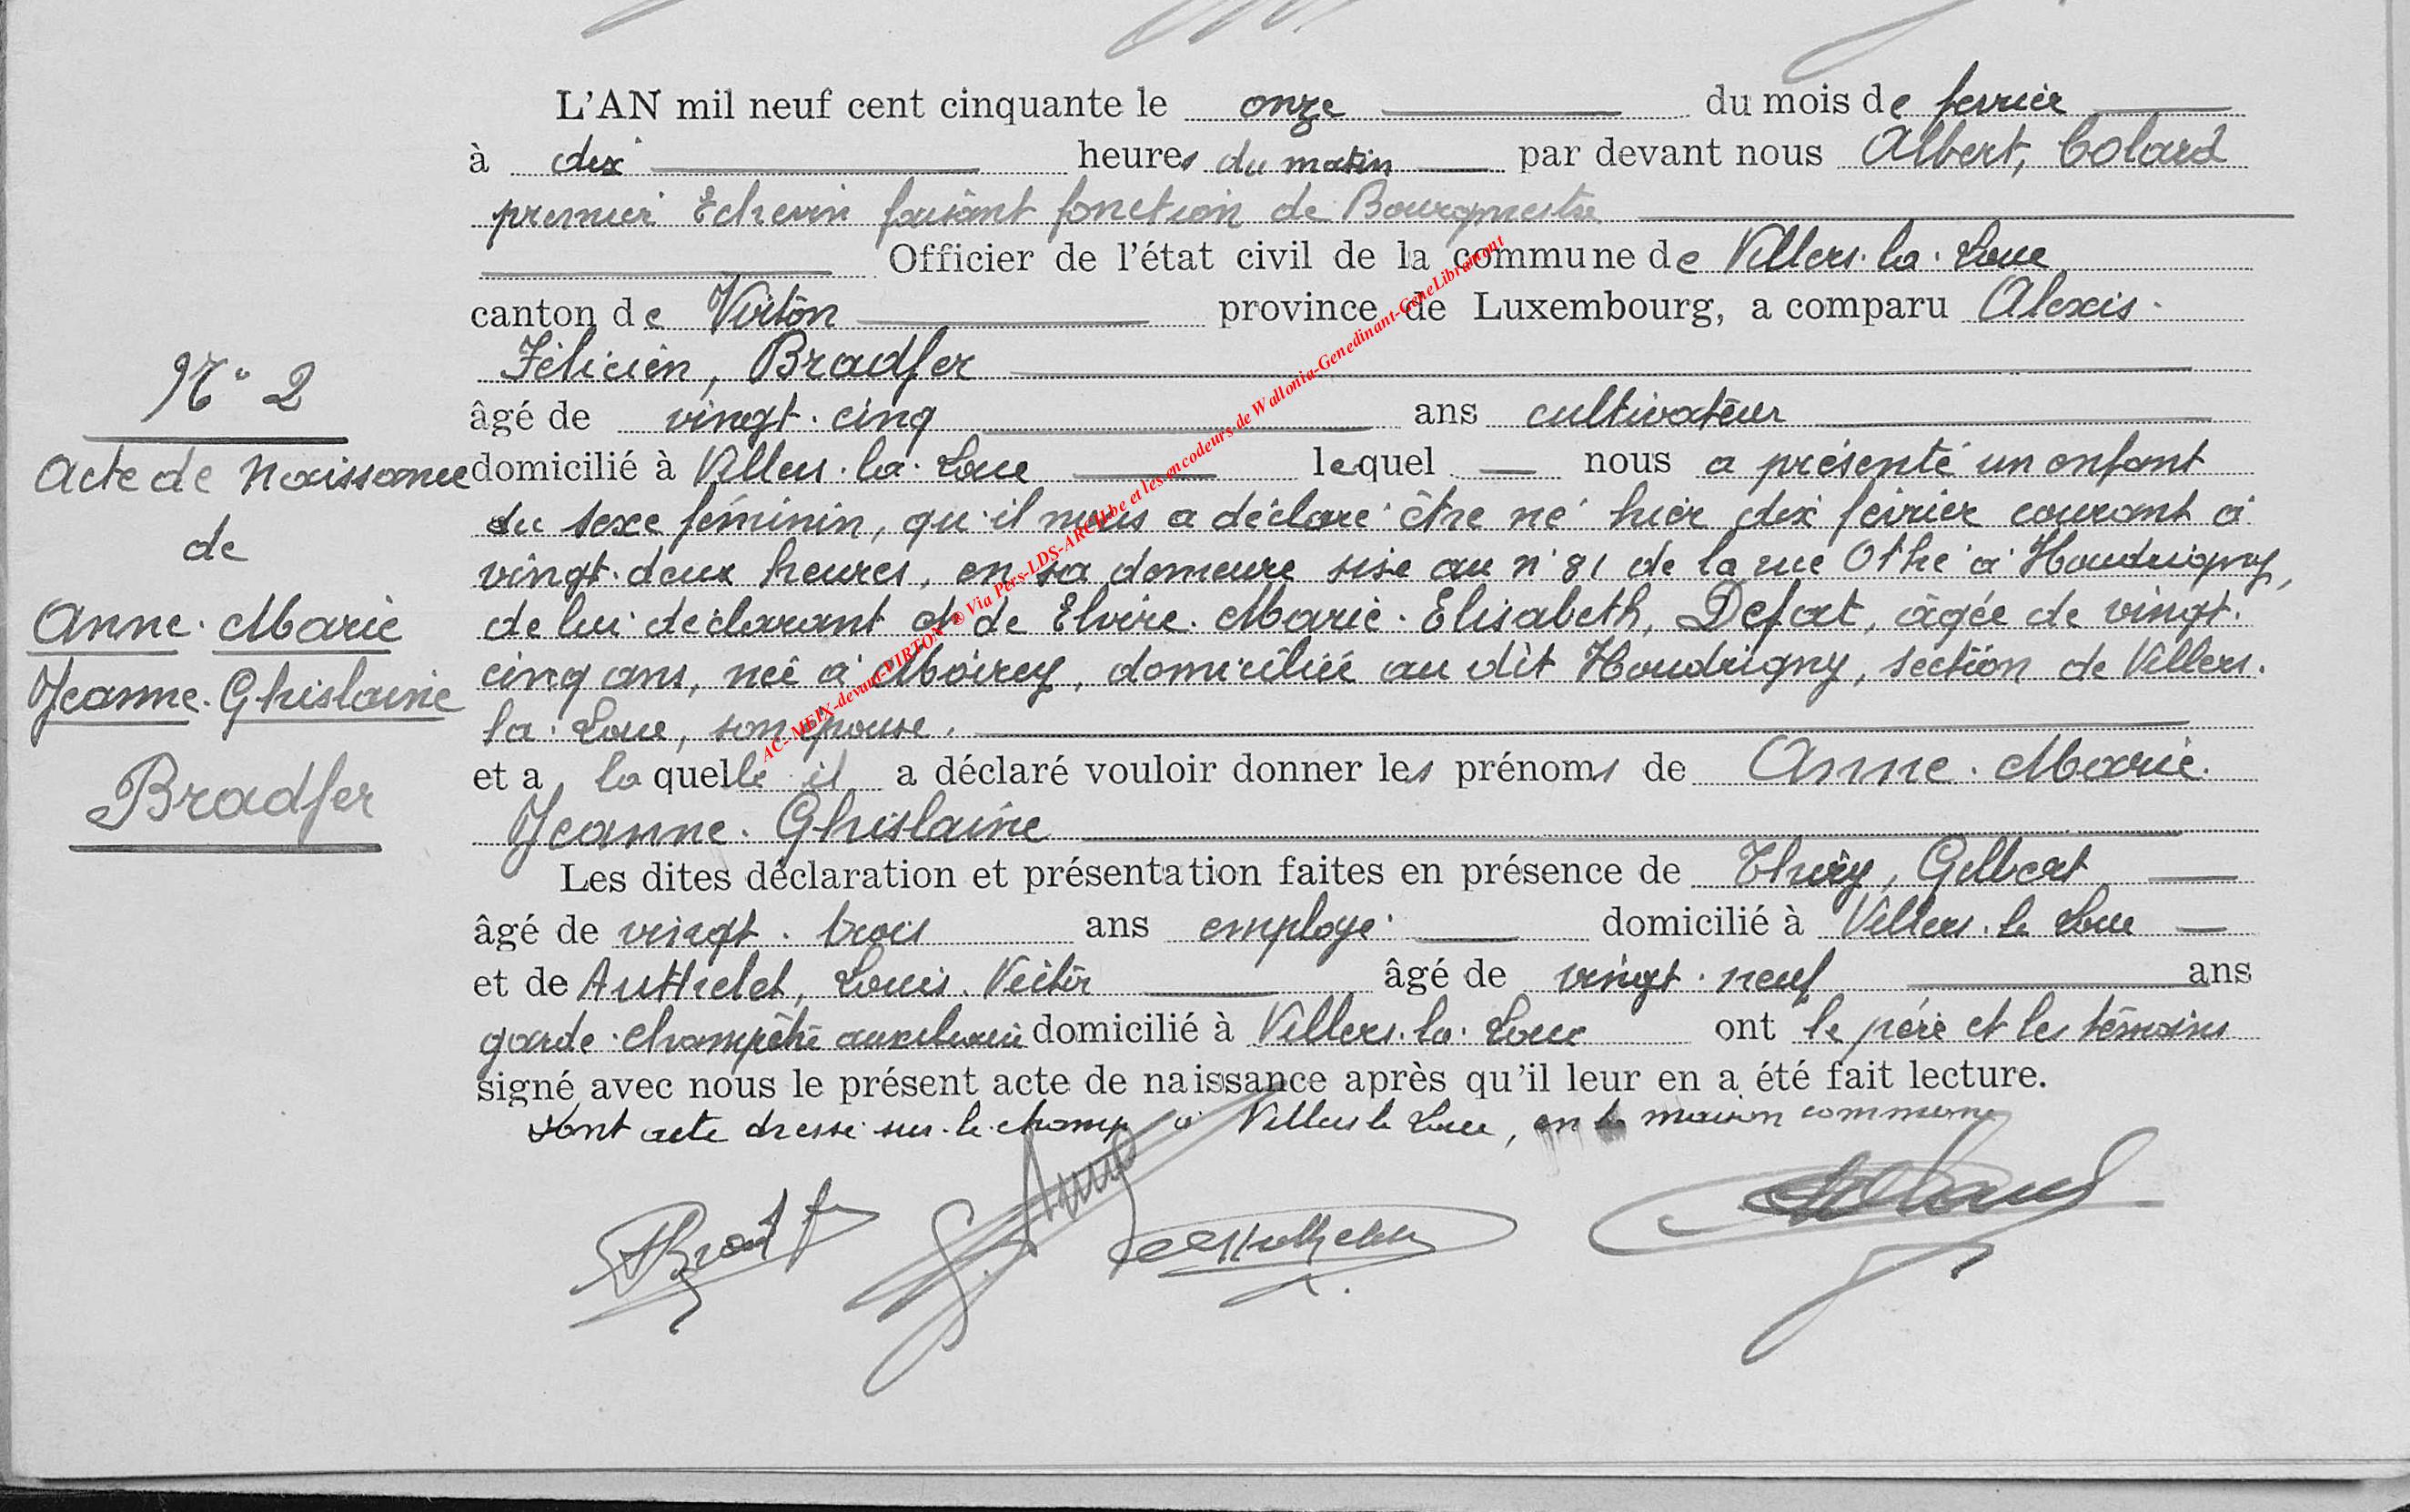 L'AN mil neuf cent cinquante le onze du mois de fevrier
à dix heures du matin par devant nous Albert, Colard
premier Echevin faisant fonction de Bourgmestre
Officier de l'état civil de la commune de Villers-la-Loue
canton de Virton province de Luxembourg, a comparu Alexis-
Félicien, Bradfer
âgé de vingt-cinq ans cultivateur
domicilié à Villers-la-Loue lequel nous a présenté un enfant
du sexe féminin, qu'il nous a déclaré être né hier dix février courant à
vingt-deux heures, en sa demeure sise au n° 81 de la rue Othe à Houdrigny,
de lui déclarant et de Elvire-Marie-Elisabeth, Defat, âgée de vingt-
cinq ans, née à Moirey, domiciliée au dit Houdrigny, section de Villers-
la-Loue, son épouse.
et a laquelle il a déclaré vouloir donner les prénoms de Anne-Marie-
Jeanne-Ghislaine
Les dites déclaration et présentation faites en présence de Thiry, Gilbert
âgé de vingt-trois ans employé domicilié à Villers-la-Loue
et de Authelet, Louis-Victor âgé de vingt-neuf ans
garde-champêtre auxiliaire domicilié à Villers-la-Loue ont le père et les témoins
signé avec nous le présent acte de naissance après qu'il leur en a été fait lecture.
Dont acte dressé sur-le-champ à Villers-la-Loue, en la maison commune
N° 2
Acte de Naissance
de
Anne-Marie
Jeanne-Ghislaine
Bradfer
AC-MEIX-devant-VIRTON © Via Pers-LDS-ARCH.be et les encodeurs de Wallonia-Genedinant-GeneLibramont